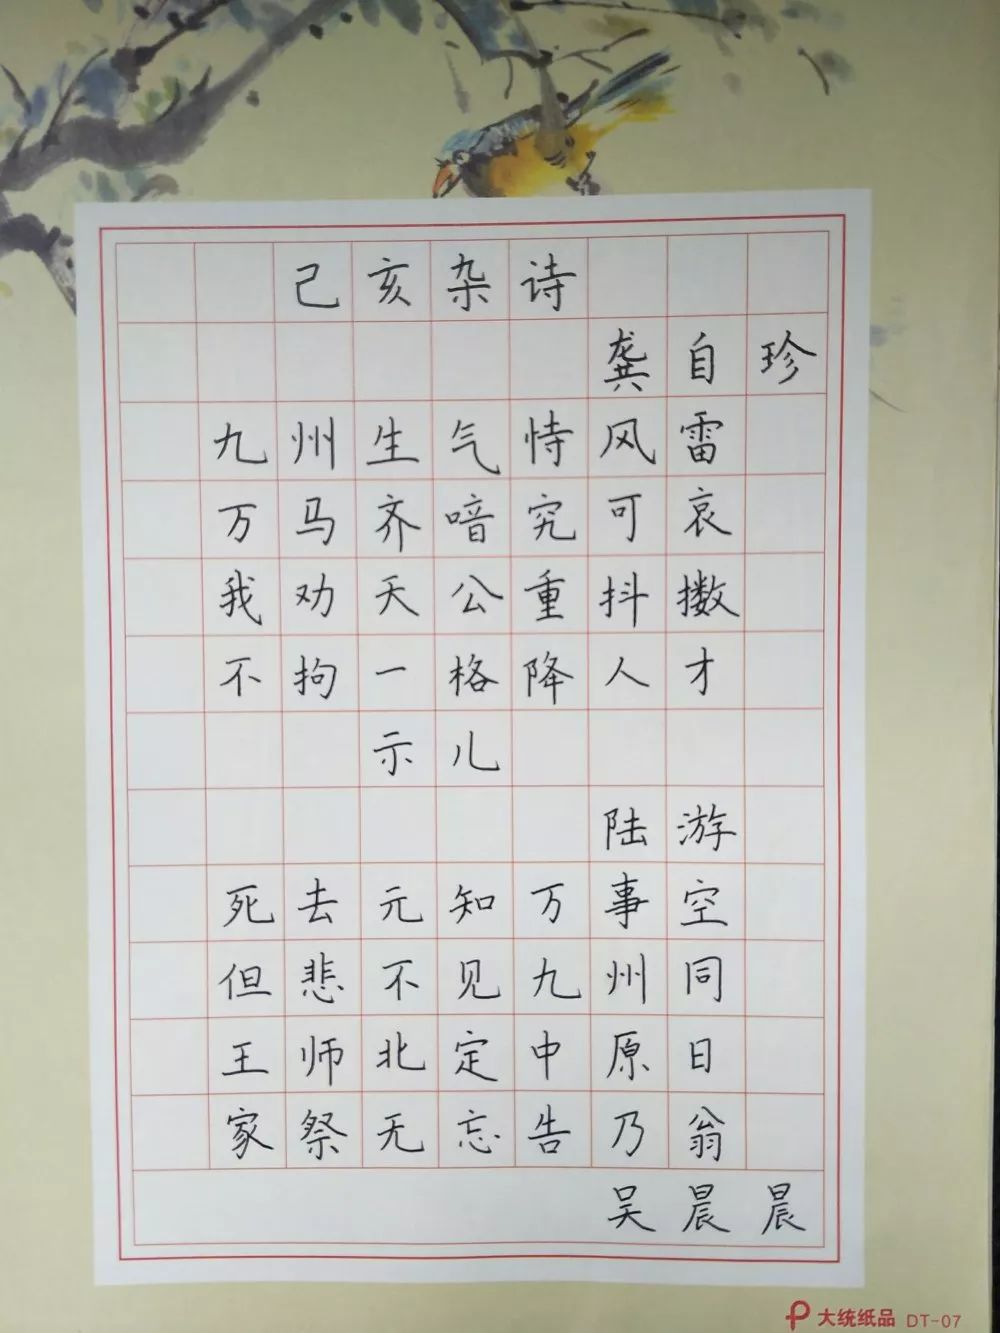 己亥杂诗
龚自珍
九州生气恃风雷
万马齐喑究可哀
我劝天公重抖擞
不拘一格降人才
示儿
陆游
死去元知万事空
但悲不见九州同
王师北定中原日
家祭无忘告乃翁
吴晨晨
大统纸品 DT-07